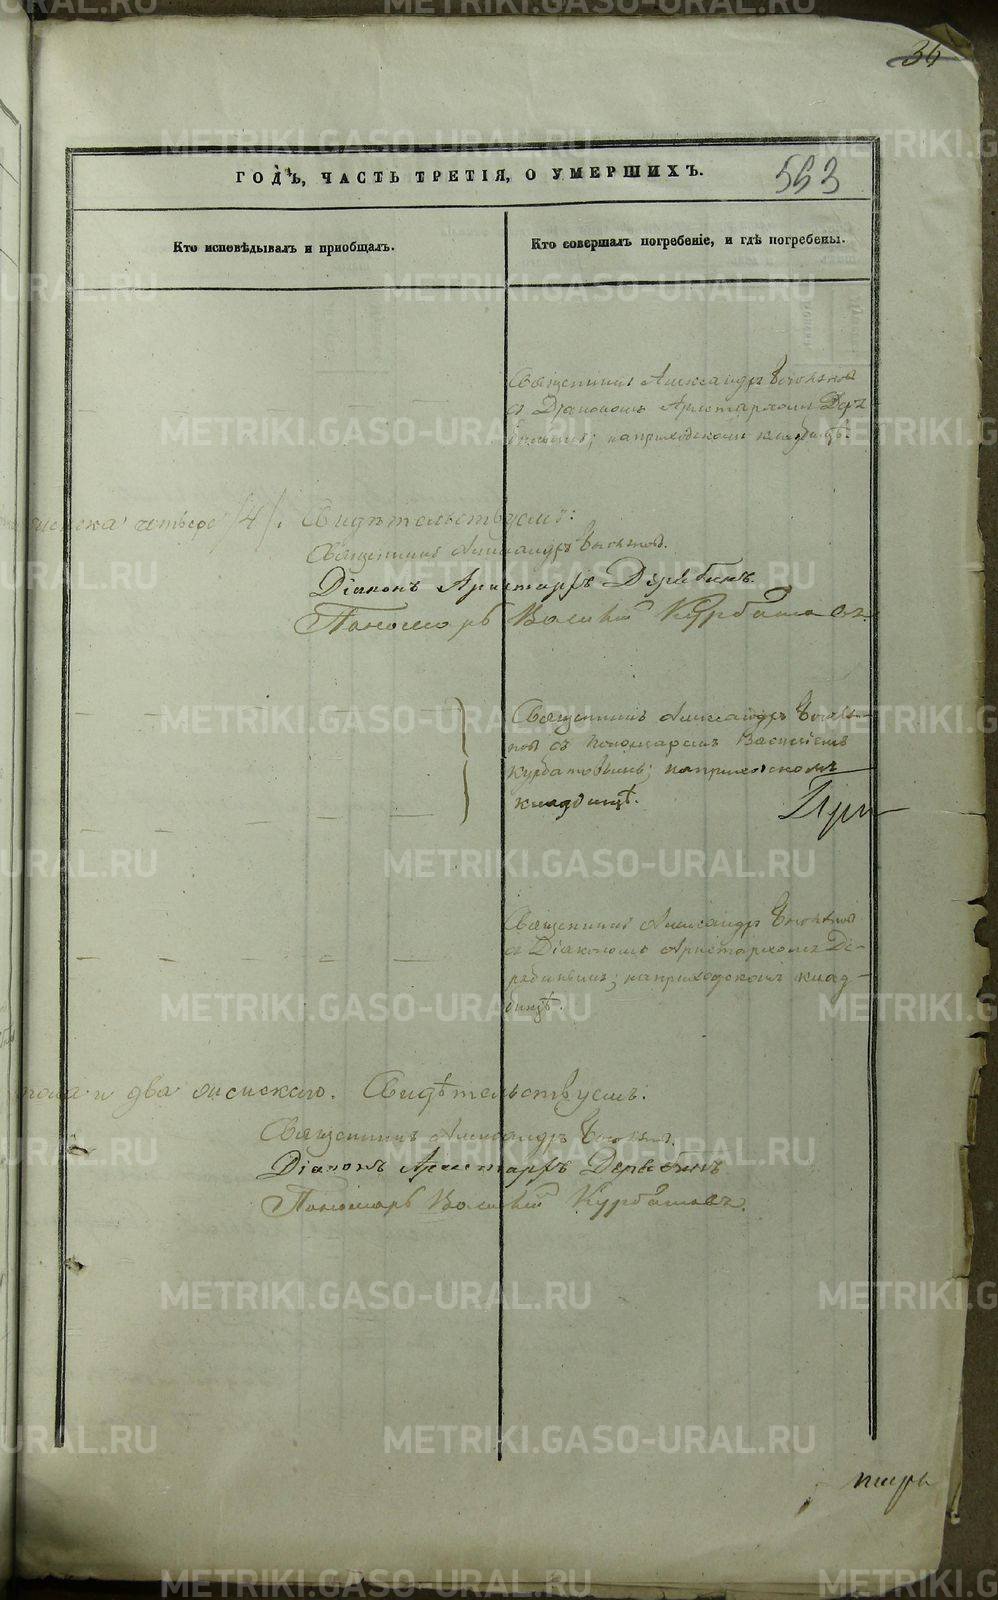 36
ГОДЪ, ЧАСТЬ ТРЕТІЯ, О УМЕРШИХЪ.
563
Кто исповѣдывалъ и приобщалъ.
Кто совершалъ погребеніе, и гдѣ погребены.
Священникъ Александръ
съ Діакономъ Аристархомъ Дерѣ
бинымъ; наприходскомъ кладбищѣ.
четверо /4/. Свидѣтельствуемъ:
Священникъ Александръ
Діаконъ Аристархъ Дерябинъ.
Пономарь Василій Курбатовъ.
Священникъ Александръ
съ пономаремъ Василіемъ
Курбатовымъ; наприходскомъ
кладбищѣ.
Священникъ Александръ
съ Діакономъ Аристархомъ Де-
рябинымъ; наприходскомъ клад-
бищѣ.
пола и два женскаго. Свидѣтельствуемъ:
Священникъ Александръ
Діаконъ Аристархъ Дерябинъ
Пономарь Василій Курбатовъ.
METRIKI.GASO-URAL.RU